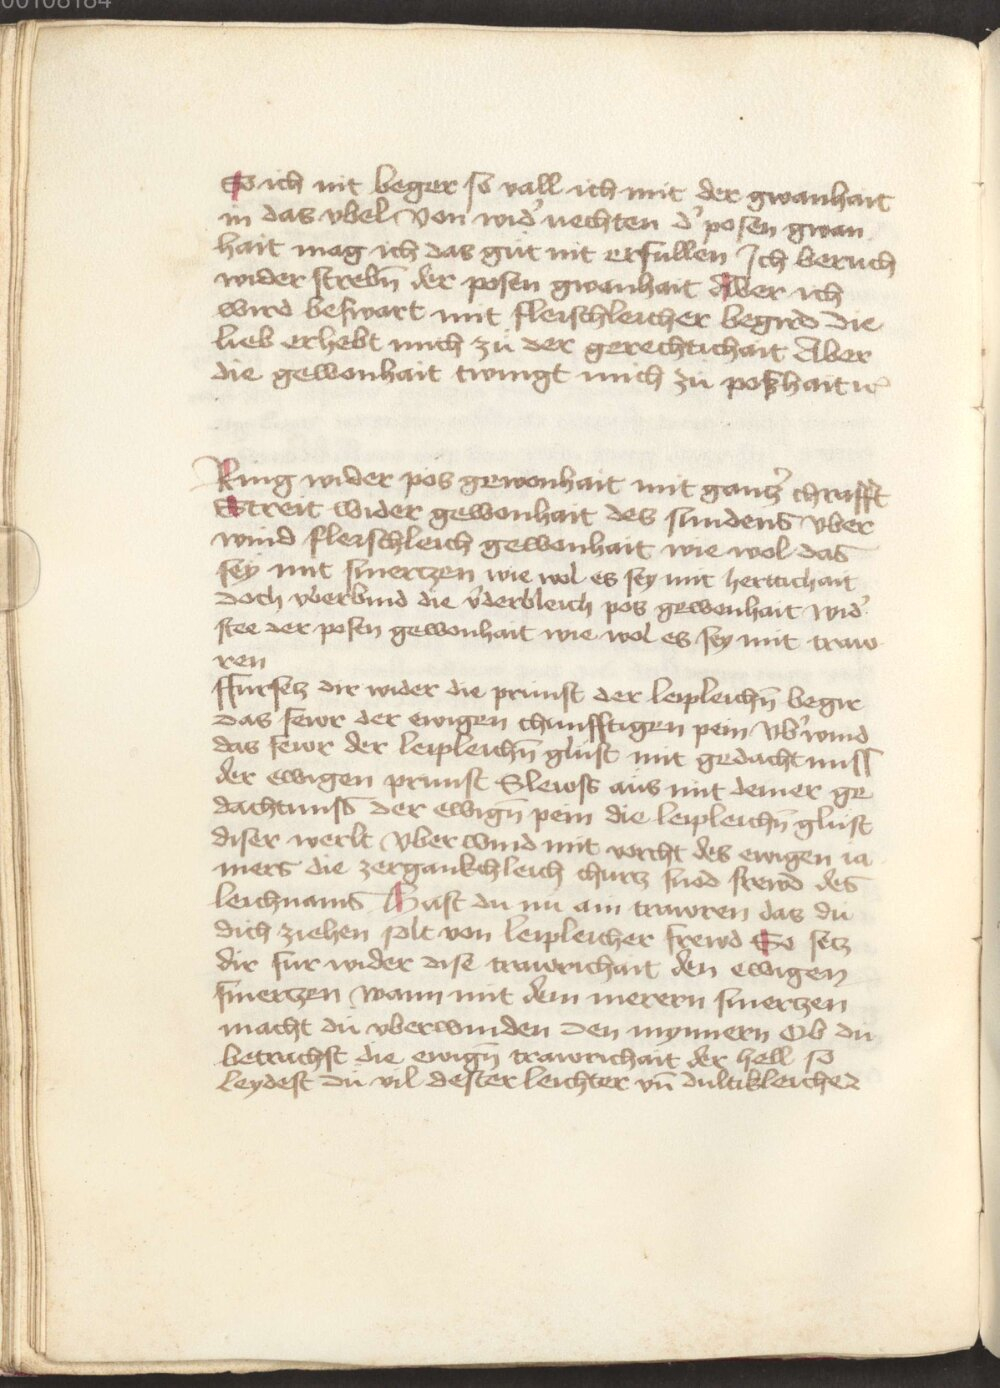 00108184
So ich nit beger so vall ich mit der gwanhait
in das vbel Von wid' uechten d' posen gwan
hait mag ich das gut nit erfullen Ich beruch
wider strebn̄ der posen gwanhait Aber ich
wird beswart mit fleischleicher begird Die
lieb erhebt mich zu der gerechtichait Aber
die gewonhait twingt mich zu poshait
Ring wider pos gewonhait mit gantz' chrafft
Streit wider gewonhait des sundens Vber
wind fleischleich gewonhait wie wol das
sey mit smertzen wie wol es sey mit herttichait
Doch vberbind die v'derbleich pos gewonhait wid'
stee der posen gewonhait wie wol es sey mit traw
ren
ffursetz dir wider die prunst der leipleichn̄ begir
Das fewr der ewigen chunfftigen pein Vb'wind
das fewr der leipleichn̄ glust mit gedachtnuss
der ewigen prunst Slewss aus mit deiner ge
dachtnuss der ewign̄ pein die leipleichn̄ glust
diser werlt Vberwind mit vorcht des ewigen ia
mers die zergankchleich churtz sued frewd des
leichnams Hast du nu ain trawren das du
dich ziehen solt von leipleicher frewd So setz
dir fur wider dise trawrichait den ewigen
smertzen Wann mit dem merern smertzen
macht du vberwinden Den mynnern Ob du
betrachst die ewign̄ trawrichait der hell so
Leydest du vil dester leichter vn̄ dultikleicher